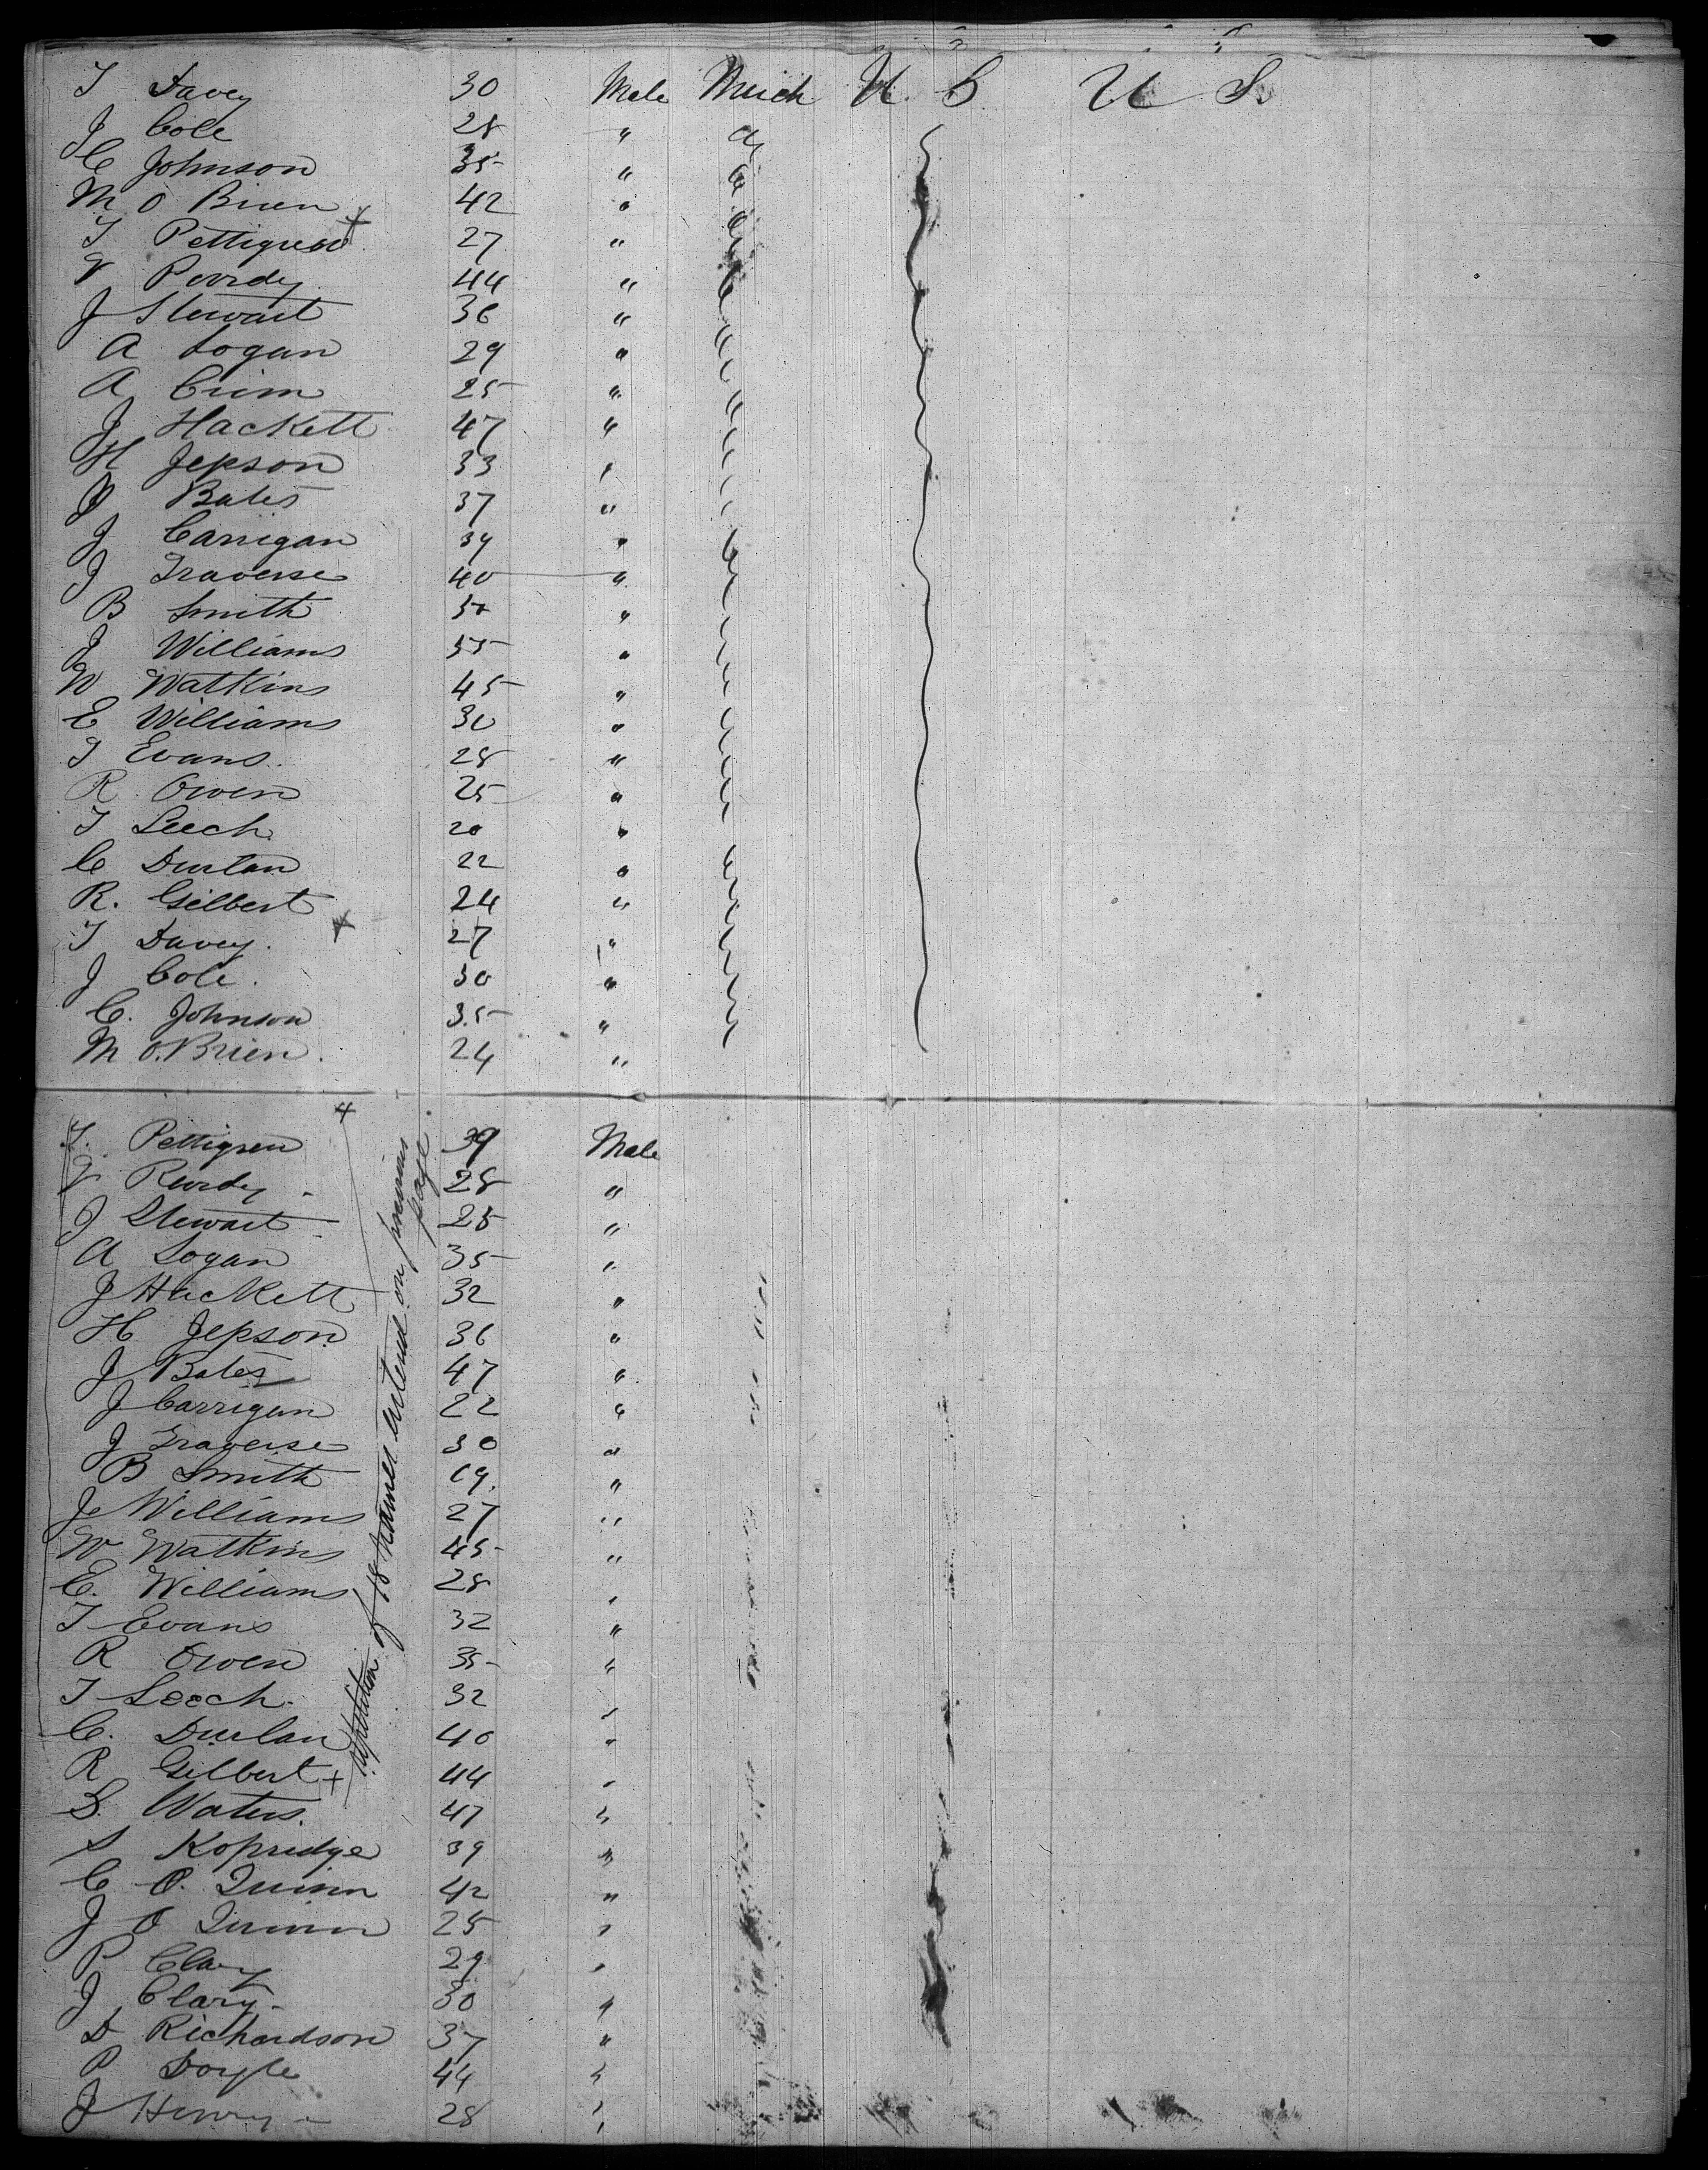 T Davey 30 Male Mich U. S. U S.
J Cole 28 "
C Johnson 35 "
M O Brien 42 "
T Pettigrew + 27 "
V Purdy 44 "
J Stewart 36 "
A Logan 29 "
A Crim 25 "
J Hackett 47 "
H Jepson 33 "
J Bates 37 "
J Carrigan 39 "
J Traverse 40 "
B Smith "
J Williams 35 "
W Watkins 45 "
E Williams 30 "
T Evans. 28 "
R. Owen 25 "
T Leech 20 "
C Durlan 22 "
R. Gilbert 24 "
T Davey. + 27 "
J Cole. 30 "
C. Johnson 35 "
M O.Brien. 24 "
T. Pettigrew + 39 Male
V Purdy 28 "
J Stewart 25 "
A Logan 35 "
J Hackett 32 "
H Jepson 36 "
J Bates 47 "
J Carrigan 22 "
J Traverse 30 "
B Smith 19. "
J Williams 27 "
W Watkins 45 "
E. Williams 28 "
T Evans 32 "
R Owen 35 "
T Leech. 32 "
C. Durlan 40 "
R Gilbert + 44 "
S. Waters. 47 "
S Kopridge 39 "
C O. Quinn 42 "
J O Quinn 25 "
P Clary 29 "
J Clary 30 "
D Richardson 37 "
P Doyle 44 "
J Henry 28 "
repetition of 18 names entered on previous page